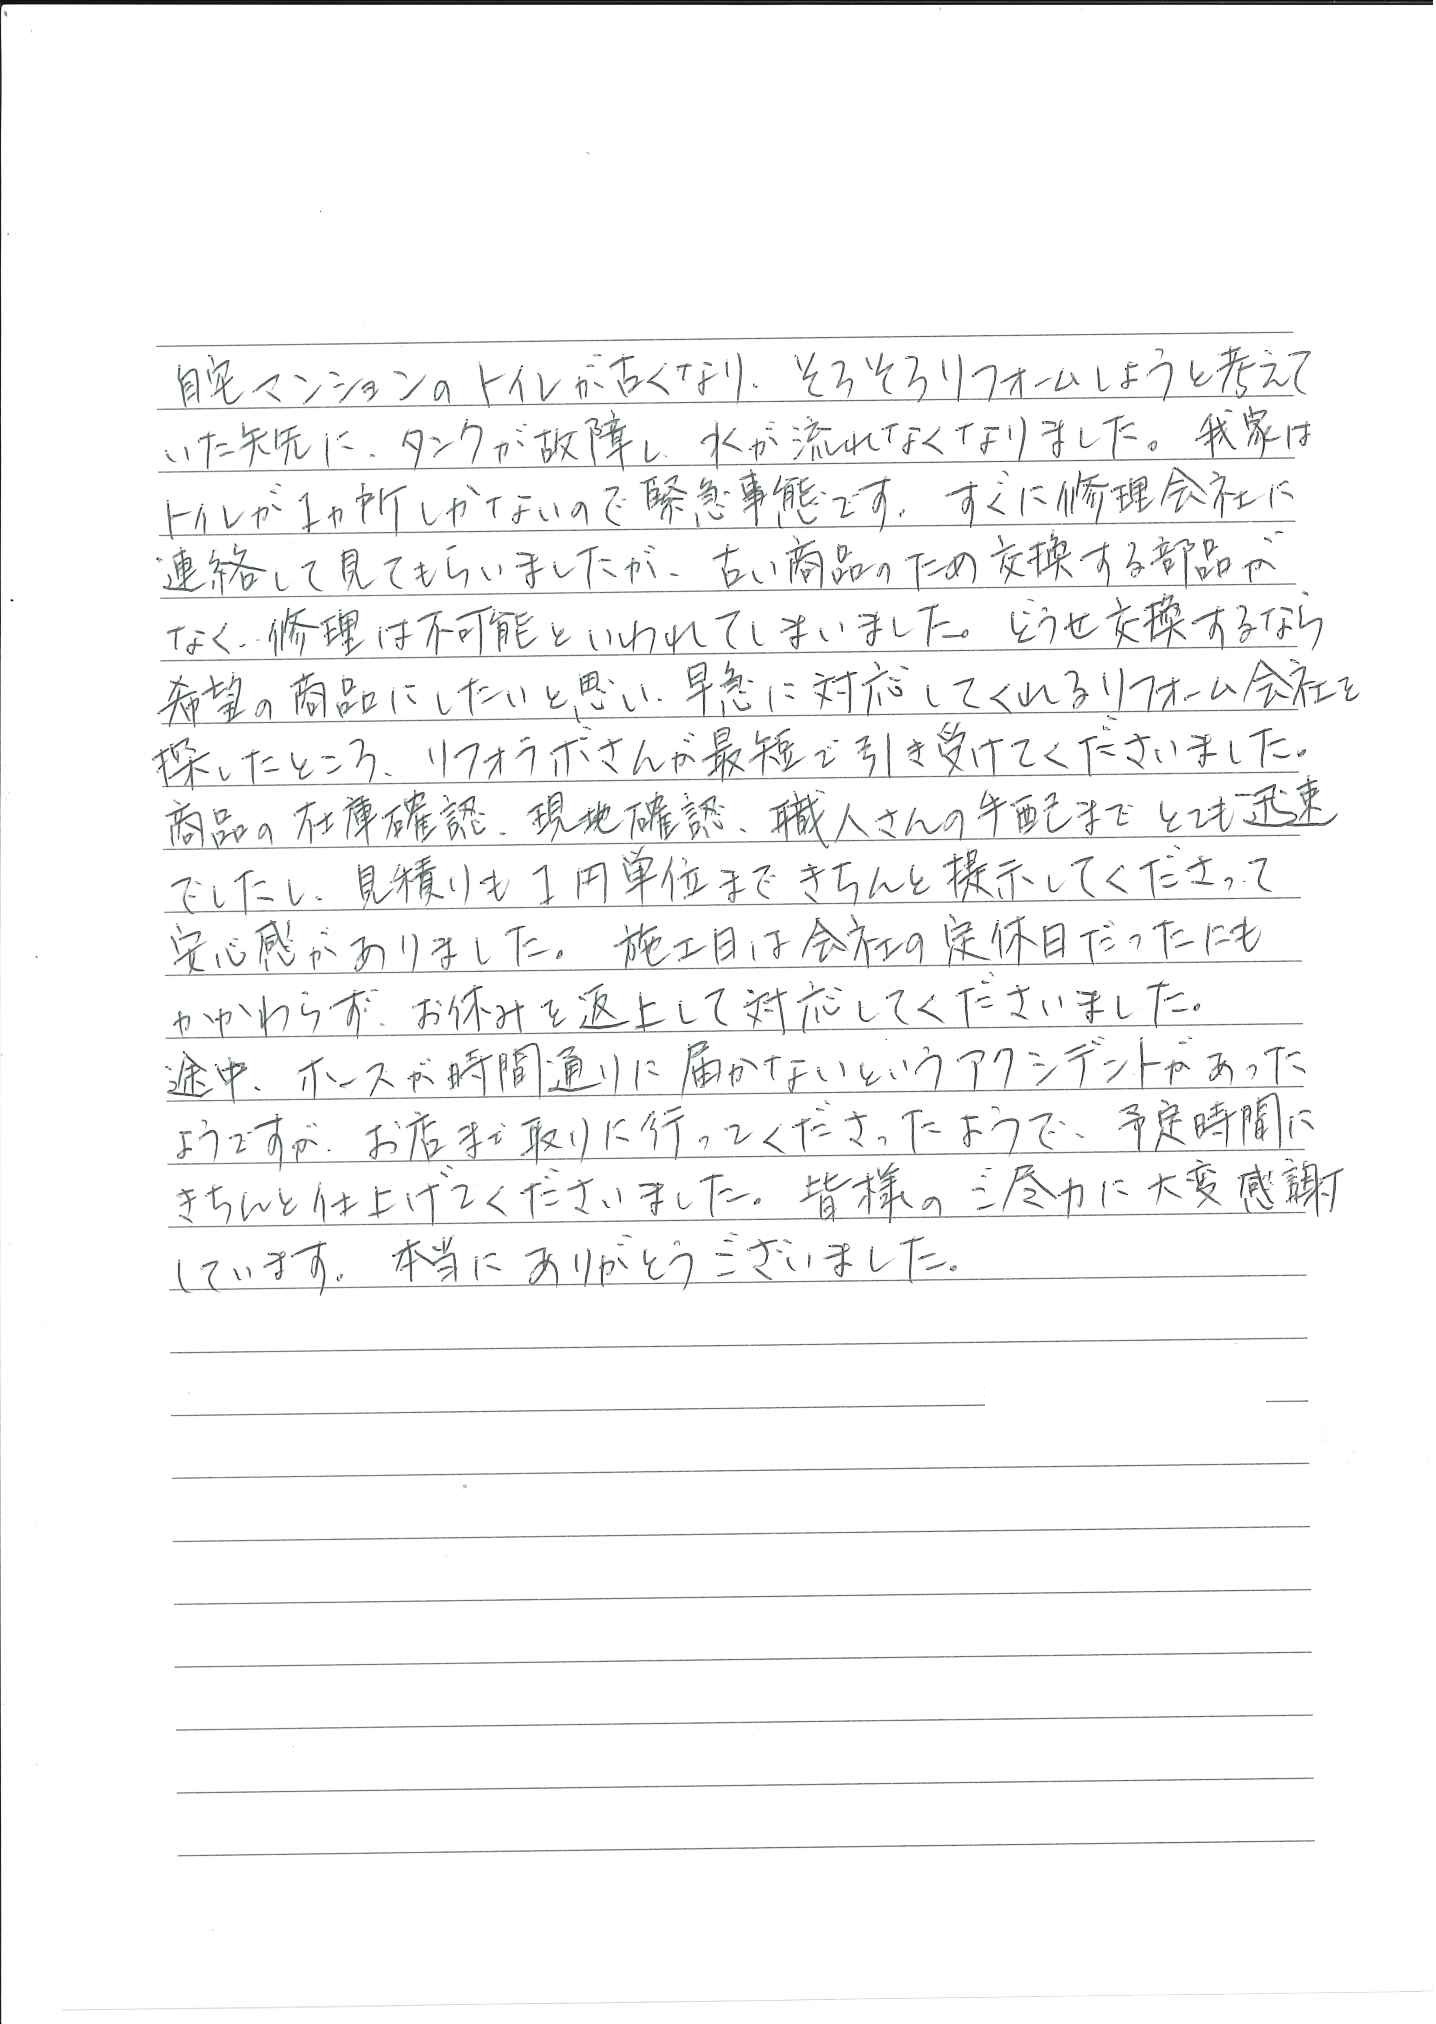 自宅マンションのトイレが古くなり、そろそろリフォームしようと考えて
いた矢先に、タンクが故障し、水が流れなくなりました。我家は
トイレが1ヵ所しかないので緊急事態です。すぐに修理会社に
連絡して見てもらいましたが、古い商品のため交換する部品が
なく、修理は不可能といわれてしまいました。どうせ交換するなら
希望の商品にしたいと思い、早急に対応してくれるリフォーム会社を
探したところ、リフォラボさんが最短で引き受けてくださいました。
商品の在庫確認、現地確認、職人さんの手配までとても迅速
でしたし、見積りも1円単位まできちんと提示してくださって
安心感がありました。施工日は会社の定休日だったにも
かかわらず、お休みを返上して対応してくださいました。
途中、ホースが時間通りに届かないというアクシデントがあった
ようですが、お店まで取りに行ってくださったようで、予定時間に
きちんと仕上げてくださいました。皆様のご尽力に大変感謝
しています。本当にありがとうございました。